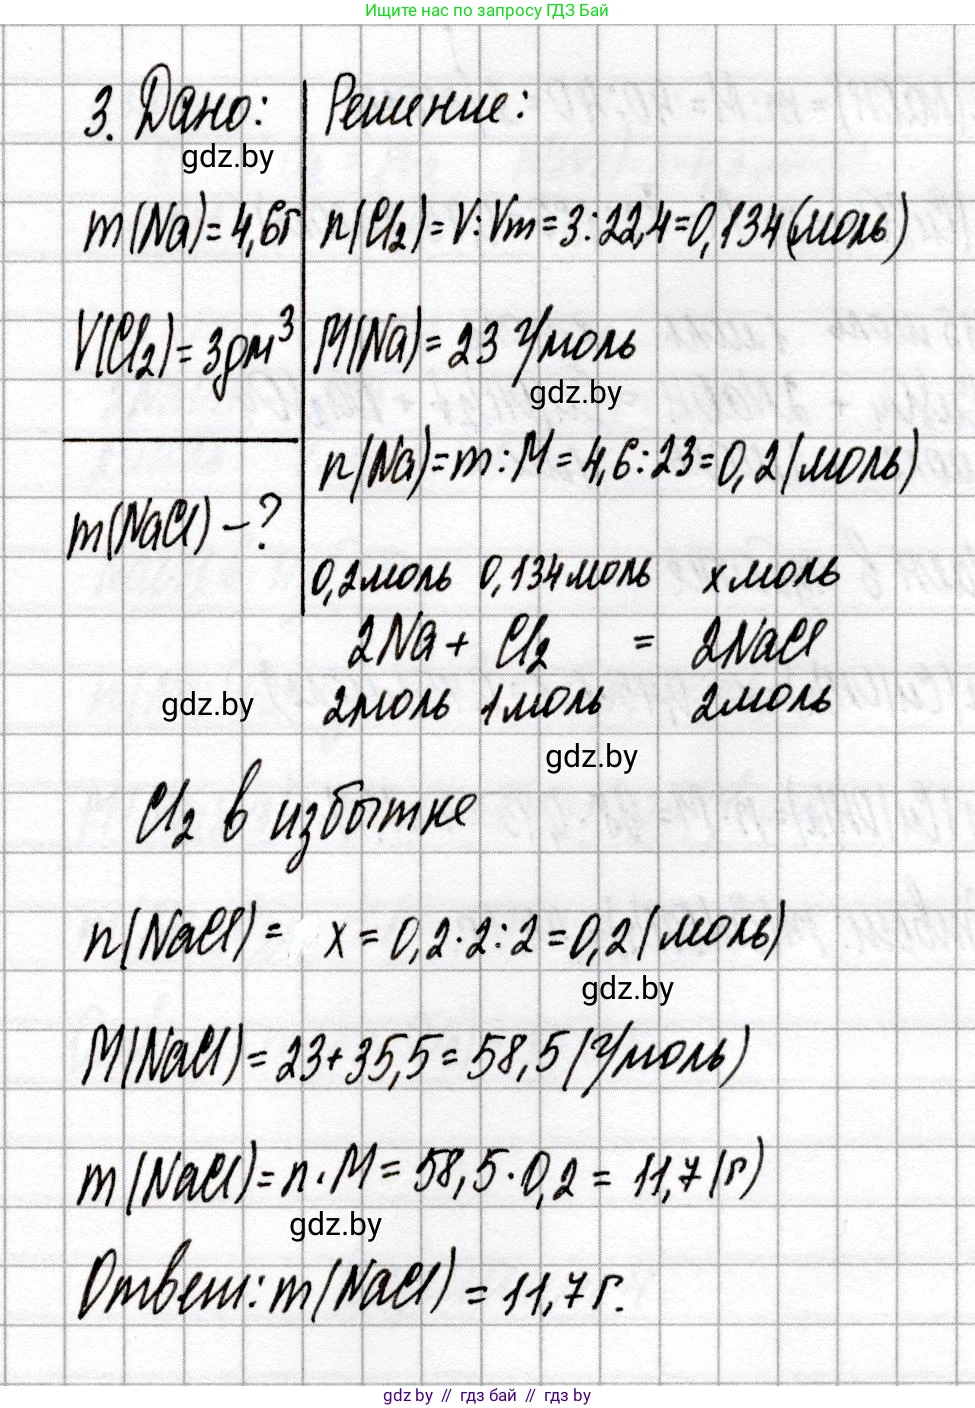 Ищите нас по запросу ГДЗ Бай
3. Дано:
gdz.by
m(Na)=4,6г
V(Cl₂)=3дм³
m(NaCl)-?
Решение:
n(Cl₂)=V:Vm=3:22,4=0,134(моль)
M(Na)=23 г/моль
gdz.by
n(Na)=m:M=4,6:23=0,2(моль)
0,2моль 0,134моль xмоль
2Na+ Cl₂ = 2NaCl
2моль 1моль 2моль
gdz.by
gdz.by
Cl₂ в избытке
n(NaCl)= x=0,2·2:2=0,2(моль)
gdz.by
M(NaCl)=23+35,5=58,5(г/моль)
m(NaCl)=n·M=58,5·0,2=11,7(г)
gdz.by
Ответ: m(NaCl)=11,7г.
gdz.by // гдз бай // гдз by